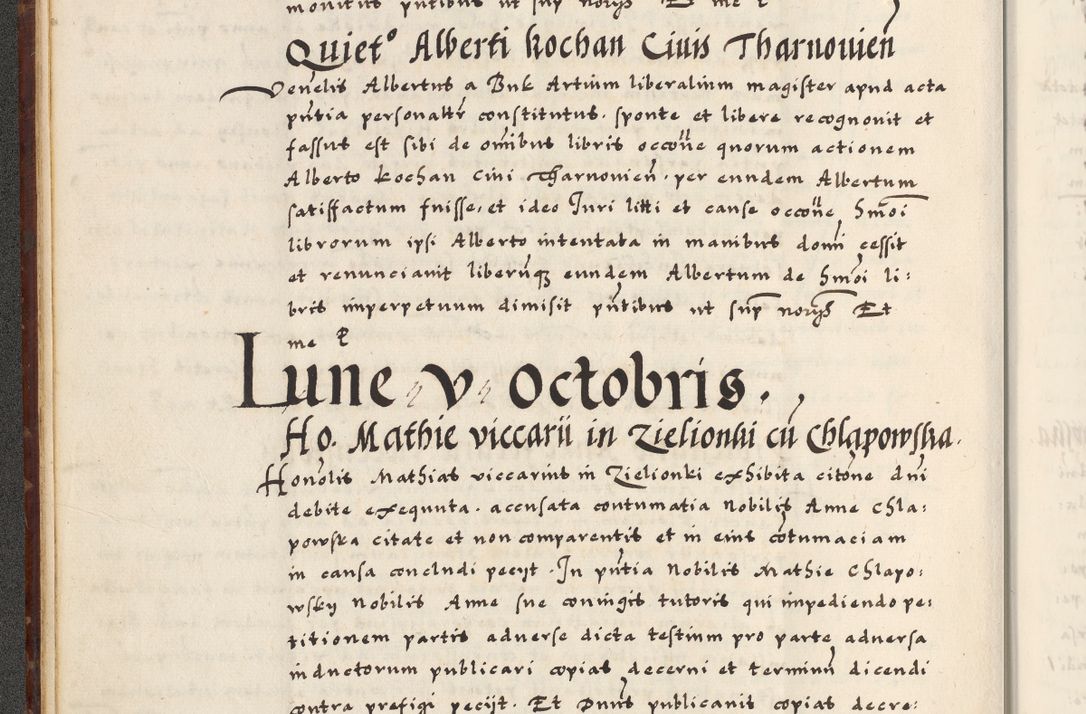 monitus pntibus ut sup norijs Et me
Quiet° Alberti kochan Ciuis Tharnouien
Venelis Albertus a Buk Artium liberalium magister apud acta
pntia personaltr constitutus. sponte et libere recognouit et
fassus est sibi de omibus libris occone quorum actionem
Alberto kochan Ciui Tharnouien. per eundem Albertum
satisffactum fuisse, et ideo Juri litti et cause occone Smoi
librorum ipsi Alberto intentata in manibus domi cessit
et renunciauit liberumq eundem Albertum de Smoi li:
bris imperpetuum dimisit pntibus ut sup norijs Et
me
Lune v Octobris.
Ho. Mathie viccarii in Zielionki cu Chlapowska.
Honolis Mathias viccarius in Zielionki exhibita citone dni
debite exequuta. accusata contumatia Nobilis Anne Chla:
powska citate et non comparentis et in eius cotumaciam
in causa concludi pecijt. In pntia Nobilis Mathie Chlapo:
wskij Nobilis Anne sue coniugis tutoris qui impediendo pe:
titionem partis aduerse dicta testium pro parte aduersa
inductorum publicari copias decerni et terminu dicendi
contra prefigi pecijt. Et Dnus publicauit copias decre: